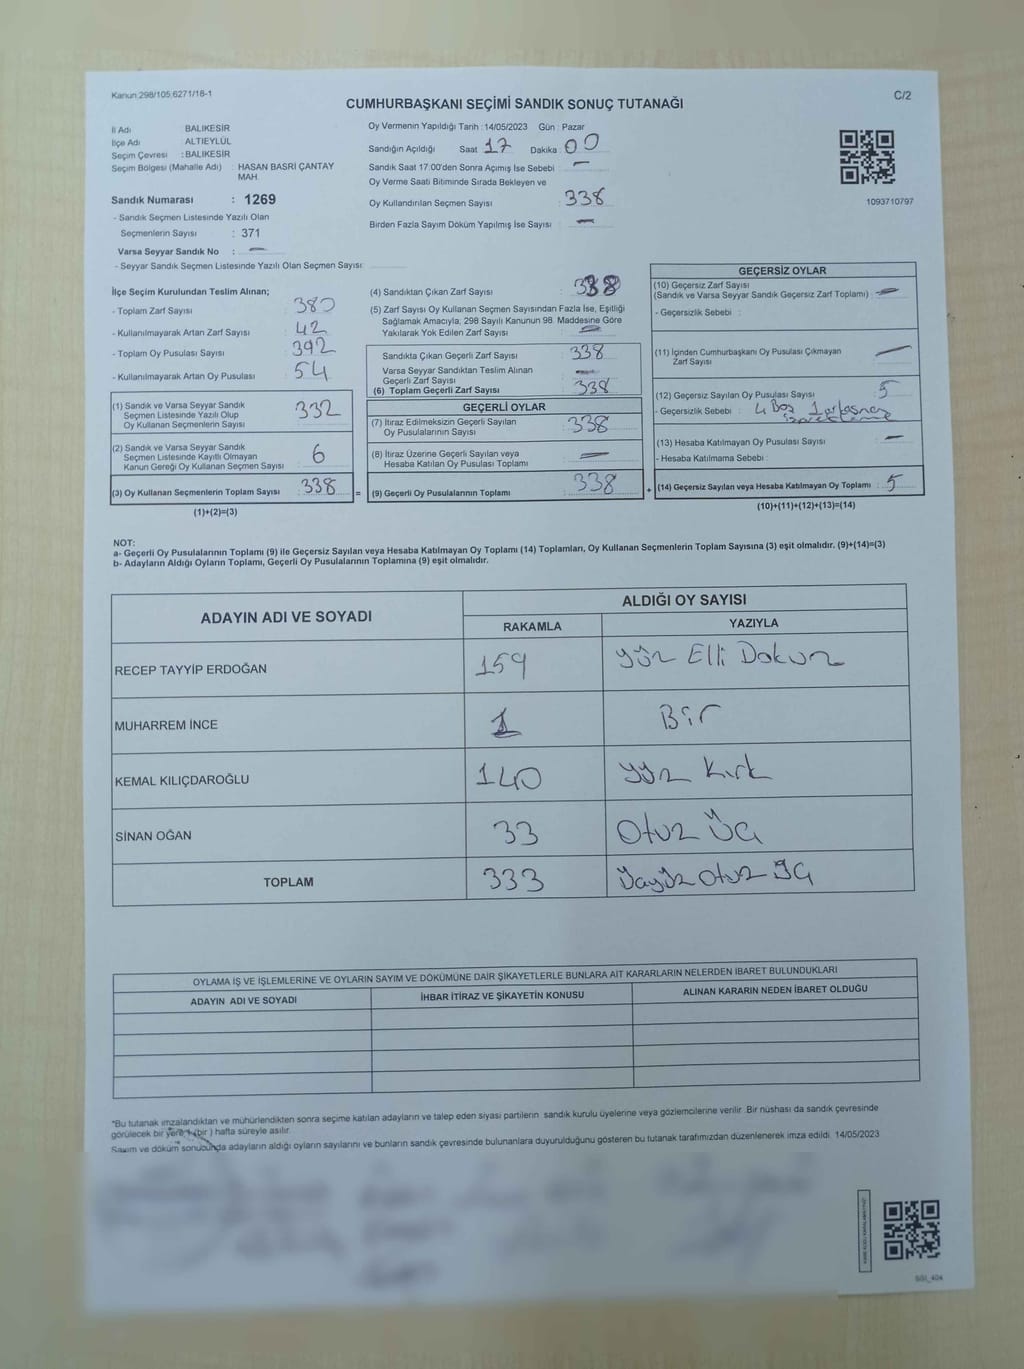 Kanun:298/105,6271/18-1
C/2
CUMHURBAŞKANI SEÇİMİ SANDIK SONUÇ TUTANAĞI
İl Adı BALIKESİR
İlçe Adı ALTIEYLÜL
Seçim Çevresi :BALIKESİR
Seçim Bölgesi (Mahalle Adı) : HASAN BASRİ ÇANTAY
MAH.
Sandık Numarası : 1269
- Sandık Seçmen Listesinde Yazılı Olan
Seçmenlerin Sayısı : 371
Varsa Seyyar Sandık No : —
- Seyyar Sandık Seçmen Listesinde Yazılı Olan Seçmen Sayısı:
Oy Vermenin Yapıldığı Tarih :14/05/2023 Gün : Pazar
Sandığın Açıldığı Saat 17 Dakika 00
Sandık Saat 17:00'den Sonra Açımış İse Sebebi : —
Oy Verme Saati Bitiminde Sırada Bekleyen ve
Oy Kullandırılan Seçmen Sayısı : 338
Birden Fazla Sayım Döküm Yapılmış İse Sayısı : —
1093710797
İlçe Seçim Kurulundan Teslim Alınan;
- Toplam Zarf Sayısı : 380
- Kullanılmayarak Artan Zarf Sayısı : 42
- Toplam Oy Pusulası Sayısı : 392
- Kullanılmayarak Artan Oy Pusulası : 54
(1) Sandık ve Varsa Seyyar Sandık
Seçmen Listesinde Yazılı Olup
Oy Kullanan Seçmenlerin Sayısı : 332
(2) Sandık ve Varsa Seyyar Sandık
Seçmen Listesinde Kayıtlı Olmayan
Kanun Gereği Oy Kullanan Seçmen Sayısı : 6
(3) Oy Kullanan Seçmenlerin Toplam Sayısı : 338 =
(1)+(2)=(3)
(4) Sandıktan Çıkan Zarf Sayısı : 338
(5) Zarf Sayısı Oy Kullanan Seçmen Sayısından Fazla İse, Eşitliği
Sağlamak Amacıyla; 298 Sayılı Kanunun 98. Maddesine Göre
Yakılarak Yok Edilen Zarf Sayısı : —
Sandıkta Çıkan Geçerli Zarf Sayısı : 338
Varsa Seyyar Sandıktan Teslim Alınan
Geçerli Zarf Sayısı : —
(6) Toplam Geçerli Zarf Sayısı : 338
GEÇERLİ OYLAR
(7) İtiraz Edilmeksizin Geçerli Sayılan
Oy Pusulalarının Sayısı : 338
(8) İtiraz Üzerine Geçerli Sayılan veya
Hesaba Katılan Oy Pusulası Toplamı : —
(9) Geçerli Oy Pusulalarının Toplamı : 338 +
GEÇERSİZ OYLAR
(10) Geçersiz Zarf Sayısı
(Sandık ve Varsa Seyyar Sandık Geçersiz Zarf Toplamı) : —
- Geçersizlik Sebebi :
(11) İçinden Cumhurbaşkanı Oy Pusulası Çıkmayan : —
Zarf Sayısı
(12) Geçersiz Sayılan Oy Pusulası Sayısı : 5
- Geçersizlik Sebebi : 4 Boş 1
(13) Hesaba Katılmayan Oy Pusulası Sayısı : —
- Hesaba Katılmama Sebebi :
(14) Geçersiz Sayılan veya Hesaba Katılmayan Oy Toplamı : 5
(10)+(11)+(12)+(13)=(14)
NOT:
a- Geçerli Oy Pusulalarının Toplamı (9) ile Geçersiz Sayılan veya Hesaba Katılmayan Oy Toplamı (14) Toplamları, Oy Kullanan Seçmenlerin Toplam Sayısına (3) eşit olmalıdır. (9)+(14)=(3)
b- Adayların Aldığı Oyların Toplamı, Geçerli Oy Pusulalarının Toplamına (9) eşit olmalıdır.
ADAYIN ADI VE SOYADI
ALDIĞI OY SAYISI
RAKAMLA YAZIYLA
RECEP TAYYİP ERDOĞAN 159 Yüz Elli Dokuz
MUHARREM İNCE 1 Bir
KEMAL KILIÇDAROĞLU 140 Yüz Kırk
SİNAN OĞAN 33 Otuz Üç
TOPLAM 333 Otuz Üç
OYLAMA İŞ VE İŞLEMLERİNE VE OYLARIN SAYIM VE DÖKÜMÜNE DAİR ŞİKAYETLERLE BUNLARA AİT KARARLARIN NELERDEN İBARET BULUNDUKLARI
ADAYIN ADI VE SOYADI İHBAR İTİRAZ VE ŞİKAYETİN KONUSU ALINAN KARARIN NEDEN İBARET OLDUĞU
*Bu tutanak imzalandıktan ve mühürlendikten sonra seçime katılan adayların ve talep eden siyasi partilerin sandık kurulu üyelerine veya gözlemcilerine verilir. Bir nüshası da sandık çevresinde
görülecek bir yere 1 (bir) hafta süreyle asılır.
Sayım ve döküm sonucunda adayların aldığı oyların sayılarını ve bunların sandık çevresinde bulunanlara duyurulduğunu gösteren bu tutanak tarafımızdan düzenlenerek imza edildi. 14/05/2023